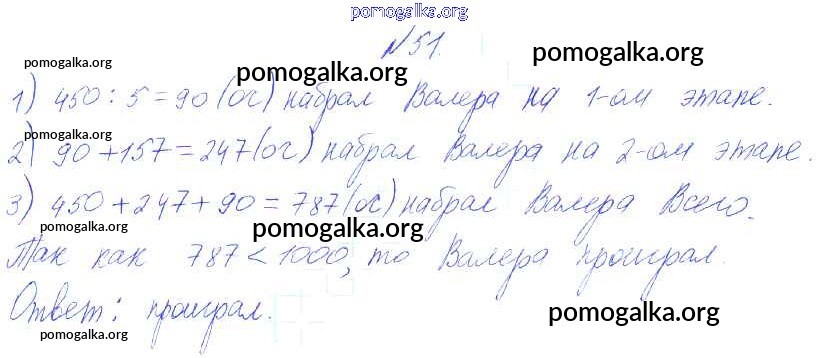 pomogalka.org
№51.
pomogalka.org pomogalka.org
pomogalka.org
1) 450 : 5 = 90 (оч) набрал Валера на 1-ом этапе.
pomogalka.org pomogalka.org
2) 90 + 157 = 247 (оч) набрал Валера на 2-ом этапе.
3) 450 + 247 + 90 = 787 (оч) набрал Валера Всего.
pomogalka.org pomogalka.org
Так как 787 < 1000, то Валера проиграл.
Ответ: проиграл.
pomogalka.org
pomogalka.org